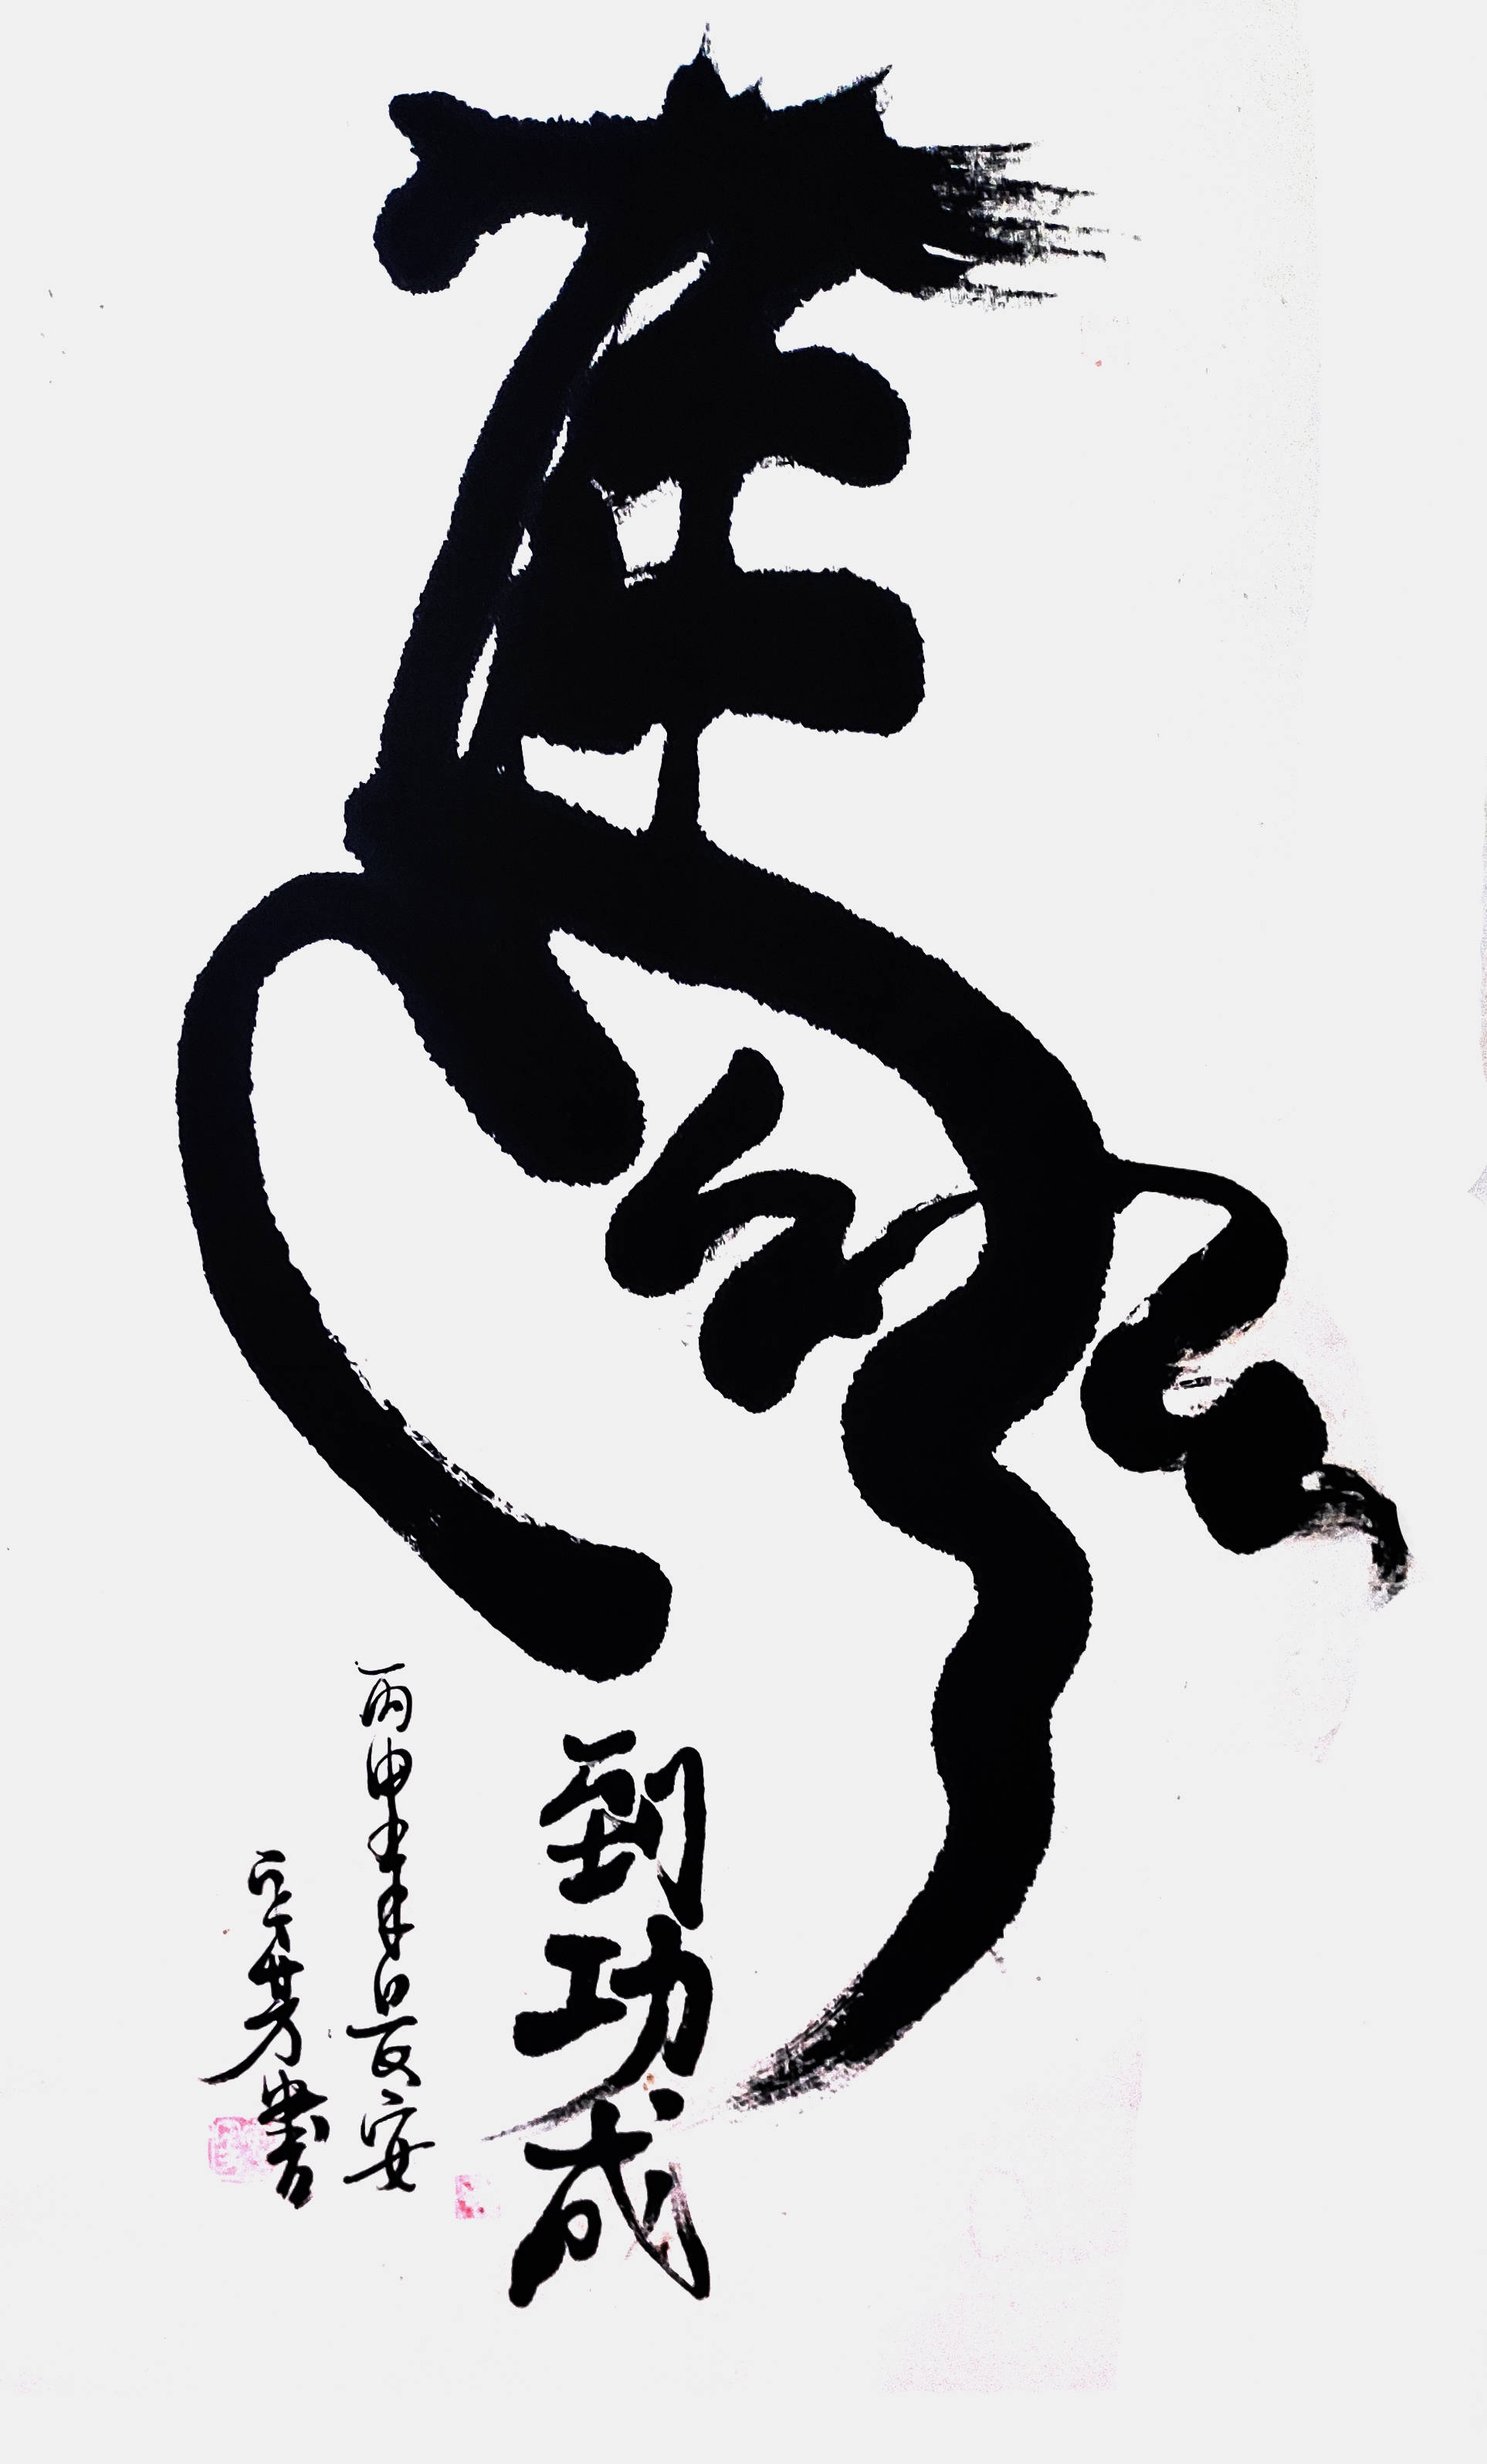 馬
到功成
丙申年
芳書